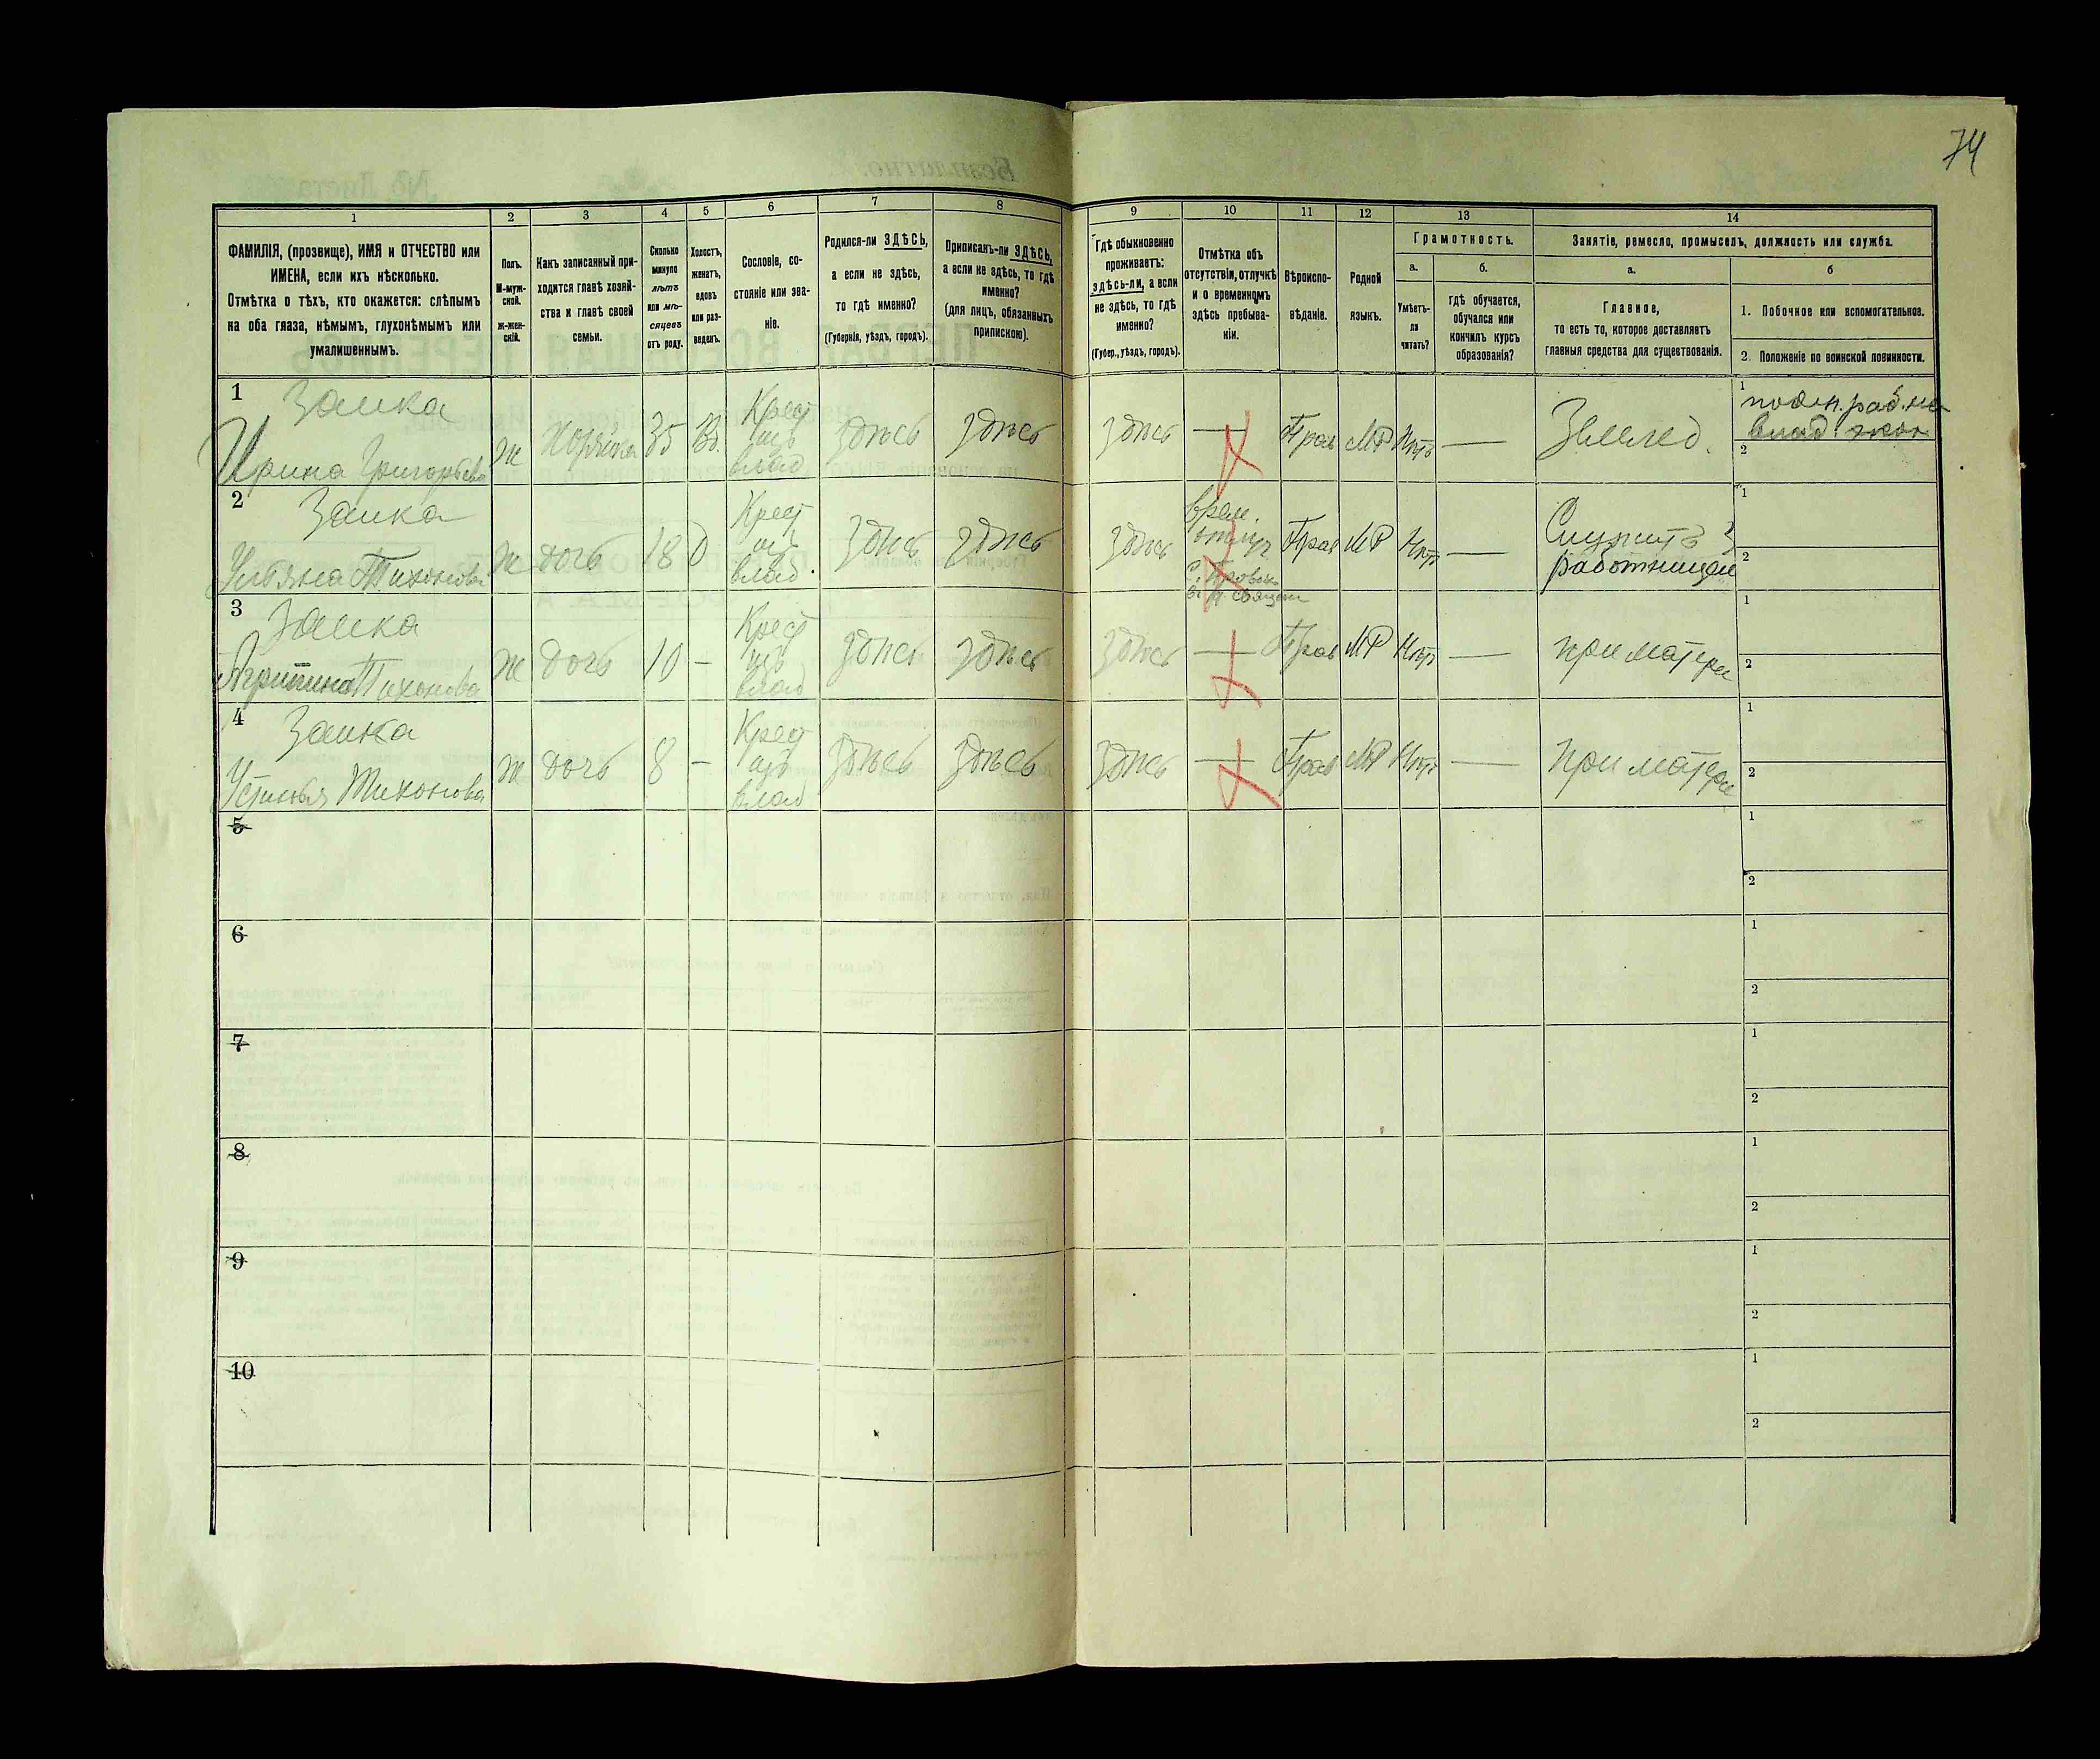 74
1 2 3 4 5 6 7 8 9 10 11 12 13 14
ФАМИЛІЯ, (прозвище), ИМЯ и ОТЧЕСТВО или
ИМЕНА, если ихъ нѣсколько.
Отмѣтка о тѣхъ, кто окажется: слѣпымъ
на оба глаза, нѣмымъ, глухонѣмымъ или
умалишеннымъ.
Полъ.
М-муж-
ской.
ж-жен-
скій.
Какъ записанный при-
ходится главѣ хозяй-
ства и главѣ своей
семьи.
Сколько
минуло
лѣтъ
или мѣ-
сяцевъ
отъ роду.
Холостъ,
женатъ,
вдовъ
или раз-
веденъ.
Сословіе, со-
стояніе или зва-
ніе.
Родился-ли ЗДѢСЬ,
а если не здѣсь,
то гдѣ именно?
(Губернія, уѣздъ, городъ).
Приписанъ-ли ЗДѢСЬ,
а если не здѣсь, то гдѣ
именно?
(для лицъ, обязанныхъ
припискою).
Гдѣ обыкновенно
проживаетъ:
здѣсь-ли, а если
не здѣсь, то гдѣ
именно?
(Губер., уѣздъ, городъ).
Отмѣтка объ
отсутствіи, отлучкѣ
и о временномъ
здѣсь пребыва-
ніи.
Вѣроиспо-
вѣданіе.
Родной
языкъ.
Грамотность.
а.
Умѣетъ-
ли
читать?
б.
гдѣ обучается,
обучался или
кончилъ курсъ
образованія?
Занятіе, ремесло, промыселъ, должность или служба.
а.
Главное,
то есть то, которое доставляетъ
главныя средства для существованія.
б
1. Побочное или вспомогательное.
2. Положеніе по воинской повинности.
1
Заика
Ирина Григорьева
Ж
Хозяйка
35
Вд.
Крест
изъ
влад
здѣсь
здѣсь
здѣсь
—
Прав
МР
Нѣтъ
—
Землед.
1
поден. раб. на
влад. экон
2
2
Заика
Ульяна Тихонова
Ж
дочь
18
Д
Крест
изъ
влад.
здѣсь
здѣсь
здѣсь
врем.
отлуч
Прав
МР
Нѣтъ
—
Служитъ
работницей
1
2
3
Заика
Агрипина Тихонова
Ж
дочь
10
—
Крест
изъ
влад
здѣсь
здѣсь
здѣсь
—
Прав
МР
Нѣтъ
—
при матери
1
2
4
Заика
Устинья Тихонова
Ж
дочь
8
—
Крест
изъ
влад
здѣсь
здѣсь
здѣсь
—
Прав
МР
Нѣтъ
—
при матери
1
2
5
1
2
6
1
2
7
1
2
8
1
2
9
1
2
10
1
2